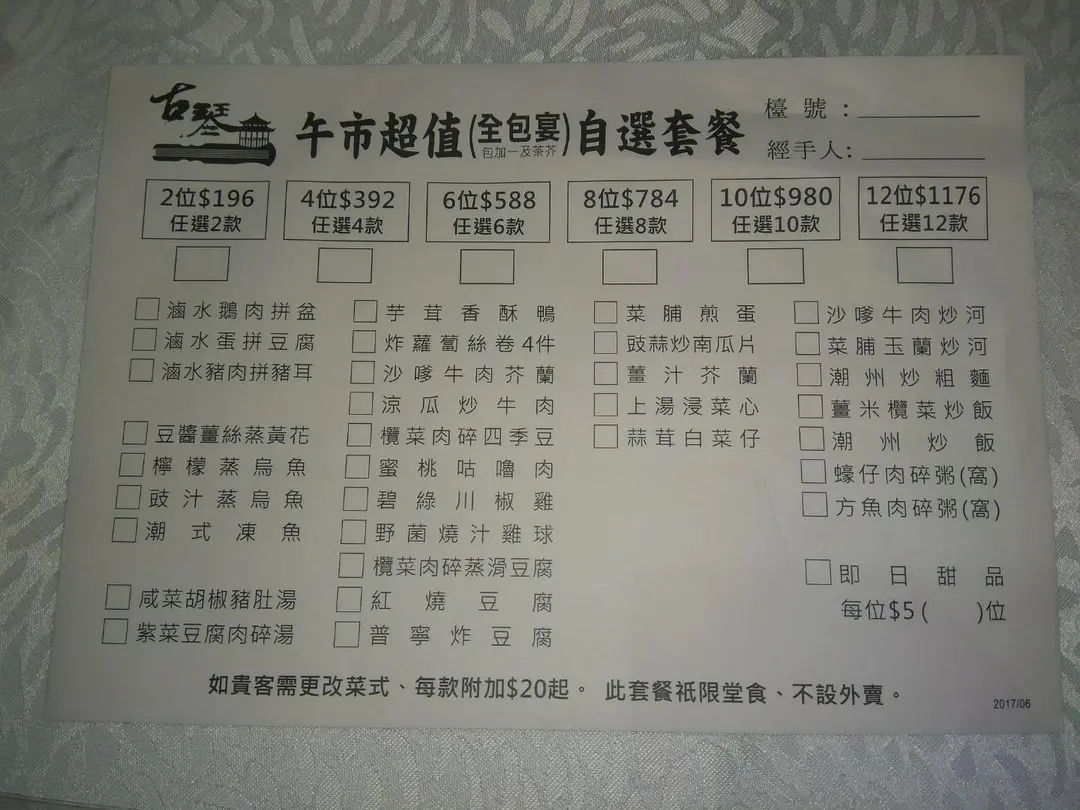 古琴
午市超值(全包宴)自選套餐
包加一及茶芥
檯號：
經手人:
2位$196
任選2款
4位$392
任選4款
6位$588
任選6款
8位$784
任選8款
10位$980
任選10款
12位$1176
任選12款
滷水鵝肉拼盆
滷水蛋拼豆腐
滷水豬肉拼豬耳
豆醬薑絲蒸黃花
檸檬蒸烏魚
豉汁蒸烏魚
潮式凍魚
咸菜胡椒豬肚湯
紫菜豆腐肉碎湯
芋茸香酥鴨
炸蘿蔔絲卷4件
沙嗲牛肉芥蘭
涼瓜炒牛肉
欖菜肉碎四季豆
蜜桃咕嚕肉
碧綠川椒雞
野菌燒汁雞球
欖菜肉碎蒸滑豆腐
紅燒豆腐
普寧炸豆腐
菜脯煎蛋
豉蒜炒南瓜片
薑汁芥蘭
上湯浸菜心
蒜茸白菜仔
沙嗲牛肉炒河
菜脯玉蘭炒河
潮州炒粗麵
薑米欖菜炒飯
潮州炒飯
蠔仔肉碎粥(窩)
方魚肉碎粥(窩)
即日甜品
每位$5 ( )位
如貴客需更改菜式、每款附加$20起。 此套餐祇限堂食、不設外賣。
2017/06